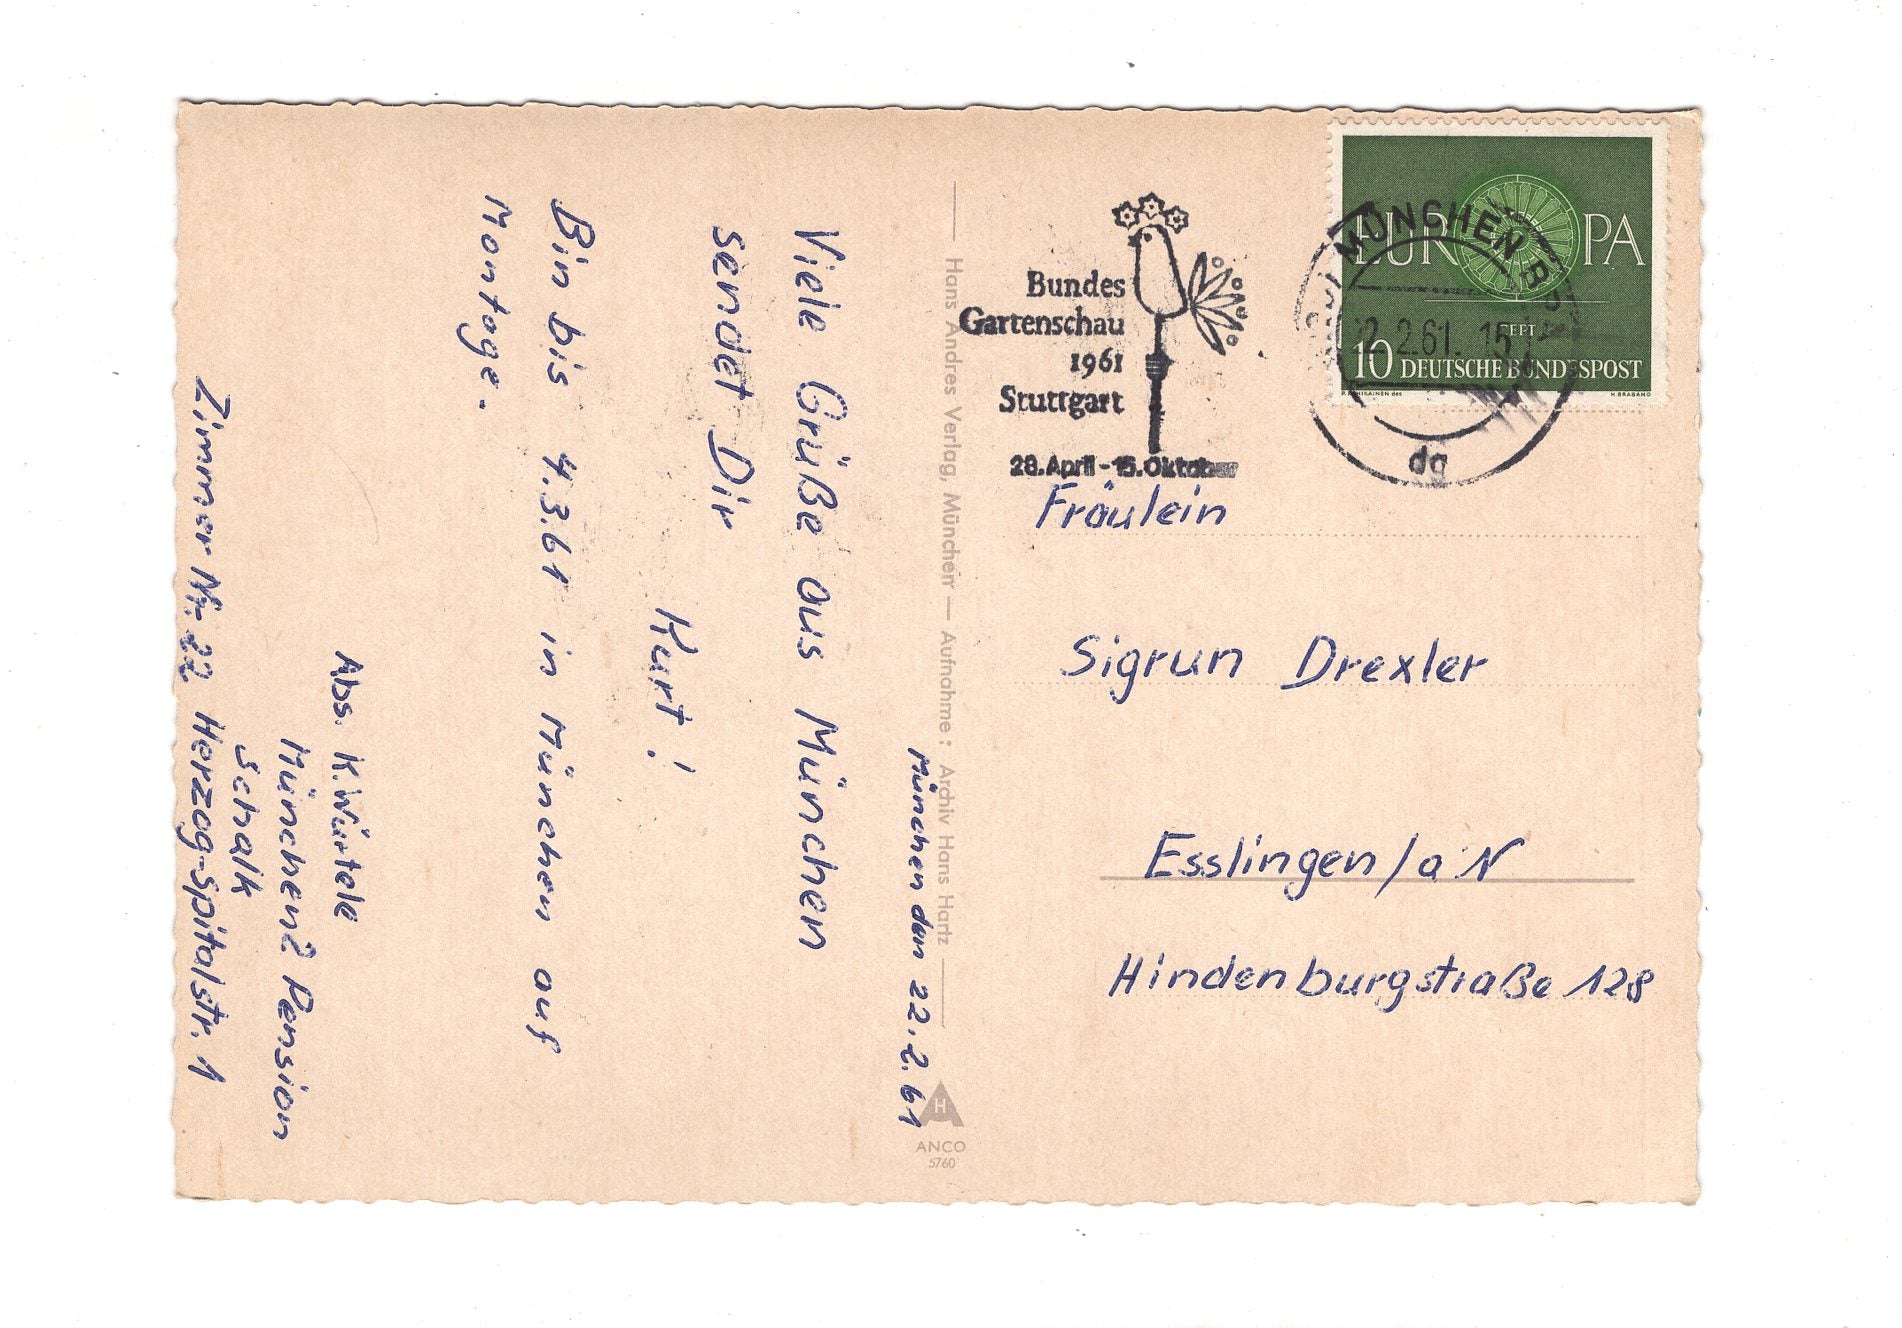 München den 22.2.61
Viele Grüße aus München
sendet Dir
Kurt!
Bin bis 4.3.61 in München auf
Montage.
Abs. K. Würtele
München 2 Pension
Schalk
Zimmer Nr. 22 Herzog-Spitalstr. 1
Hans Andres Verlag, München — Aufnahme: Archiv Hans Hartz
H
ANCO
5760
Bundes
Gartenschau
1961
Stuttgart
28. April - 15. Oktober
MÜNCHEN
2.2.61. 15
dg
EUROPA
CEPT
10 DEUTSCHE BUNDESPOST
H. BRABAND
Fräulein
Sigrun Drexler
Esslingen/a N
Hindenburgstraße 128